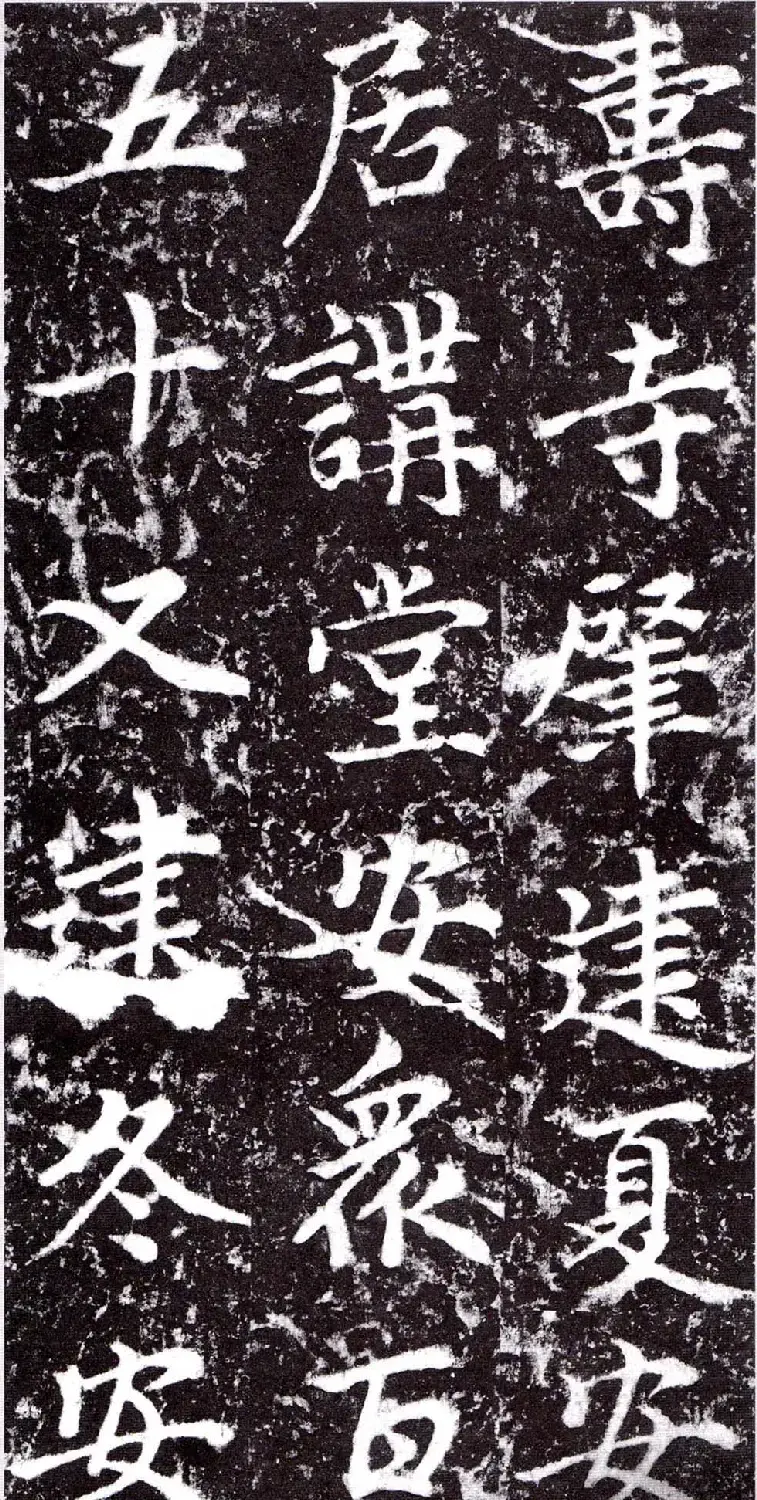 壽寺肈建夏安
居講堂安衆百
五十又建冬安